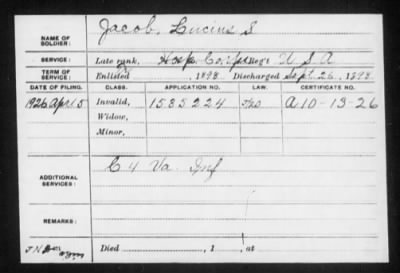 NAME OF
SOLDIER:
Jacob, Lucius S
SERVICE:
Late rank, Hosp. Corps Reg't U S A
TERM OF
SERVICE:
Enlisted , 1898 Discharged Sept. 26, 1898
DATE OF FILING. CLASS. APPLICATION NO. LAW. CERTIFICATE NO.
1926 Apr 5 Invalid, 1585224 A 10-13-26
Widow,
Minor,
ADDITIONAL
SERVICES:
C 4 Va. Inf
REMARKS:
Died , 1 , at